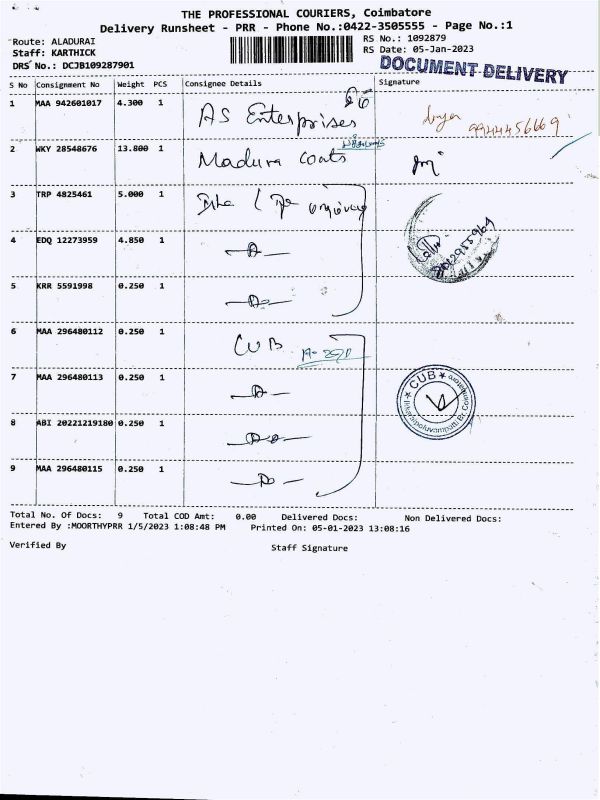 THE PROFESSIONAL COURIERS, Coimbatore
Delivery Runsheet - PRR - Phone No.:0422-3505555 - Page No.:1
Route: ALADURAI
RS No.: 1092879
Staff: KARTHICK
RS Date: 05-Jan-2023
DRS No.: DCJB109287901
DOCUMENT DELIVERY
S No Consignment No Weight PCS Consignee Details Signature
1 MAA 942601017 4.300 1 AS Enterprises 9944456669
2 WKY 28548676 13.800 1 Madura coats
3 TRP 4825461 5.000 1
4 EDQ 12273959 4.850 1
5 KRR 5591998 0.250 1
6 MAA 296480112 0.250 1 CUB
7 MAA 296480113 0.250 1
CUB
8 ABI 20221219180 0.250 1
9 MAA 296480115 0.250 1
Total No. Of Docs: 9 Total COD Amt: 0.00 Delivered Docs: Non Delivered Docs:
Entered By :MOORTHYPRR 1/5/2023 1:08:48 PM Printed On: 05-01-2023 13:08:16
Verified By Staff Signature